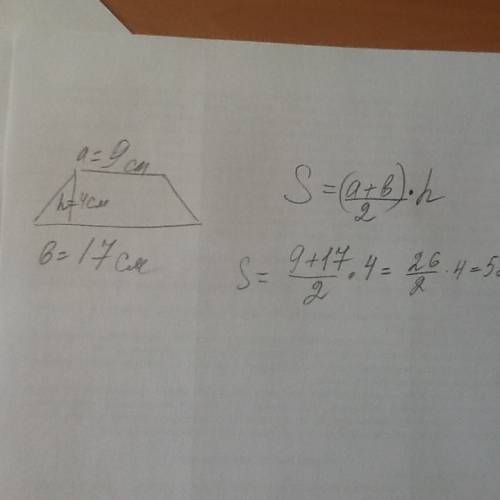 a = 9 см
h = 4 см
в = 17 см
S = (a+в)/2 · h
S = 9+17/2 · 4 = 26/2 · 4 = 5